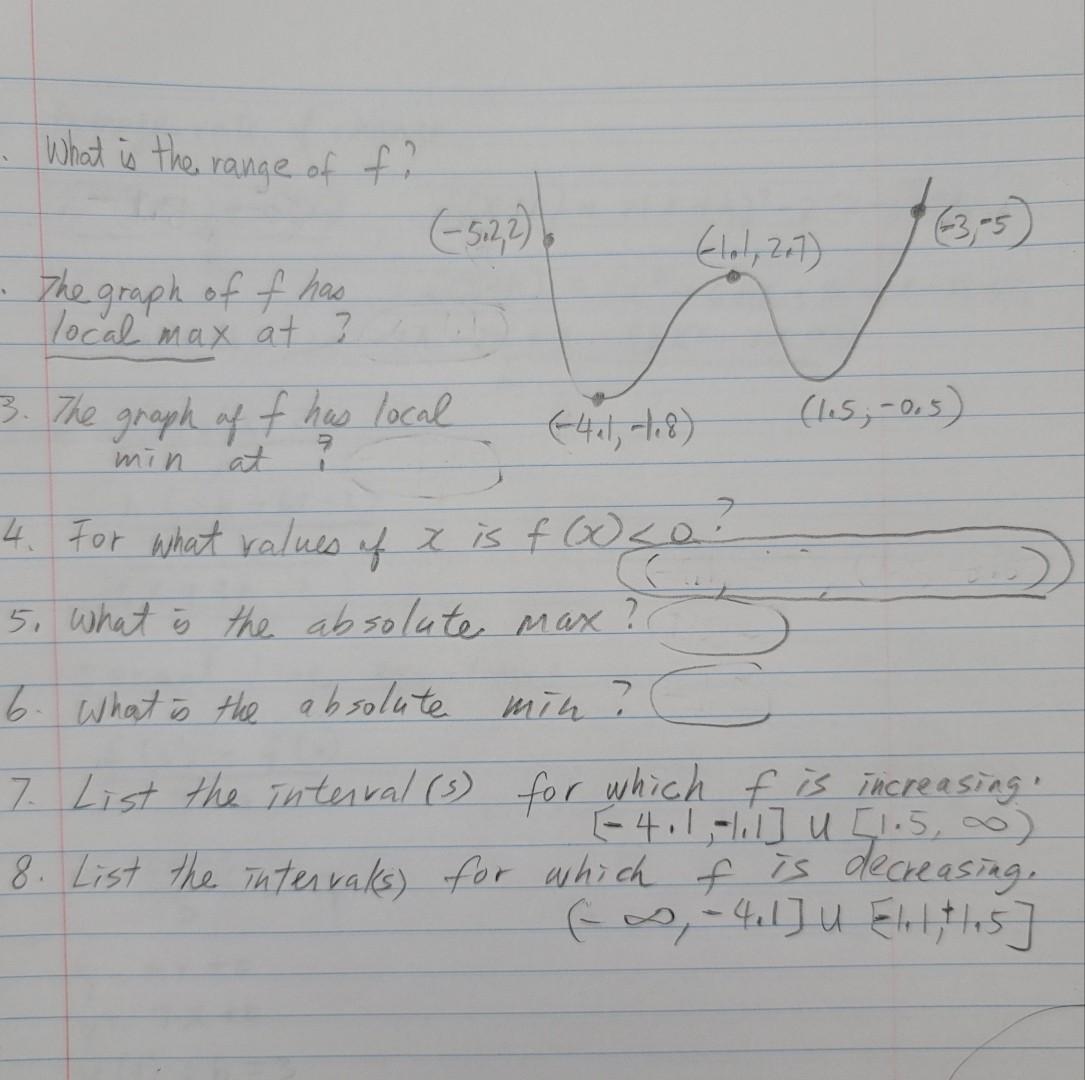 . What is the range of f?
(-5.2,2)
(-1.1, 2.7)
(-3,-5)
. The graph of f has
local max at ?
3. The graph of f has local
min at ?
(-4.1, -1.8)
(1.5, -0.5)
4. For what values of x is f(x)<0?
5. What is the absolute max?
6. What is the absolute min?
7. List the interval(s) for which f is increasing.
[-4.1,-1.1] U [1.5, ∞)
8. List the intervals) for which f is decreasing.
(-∞, -4.1] U [-1.1,+1.5]